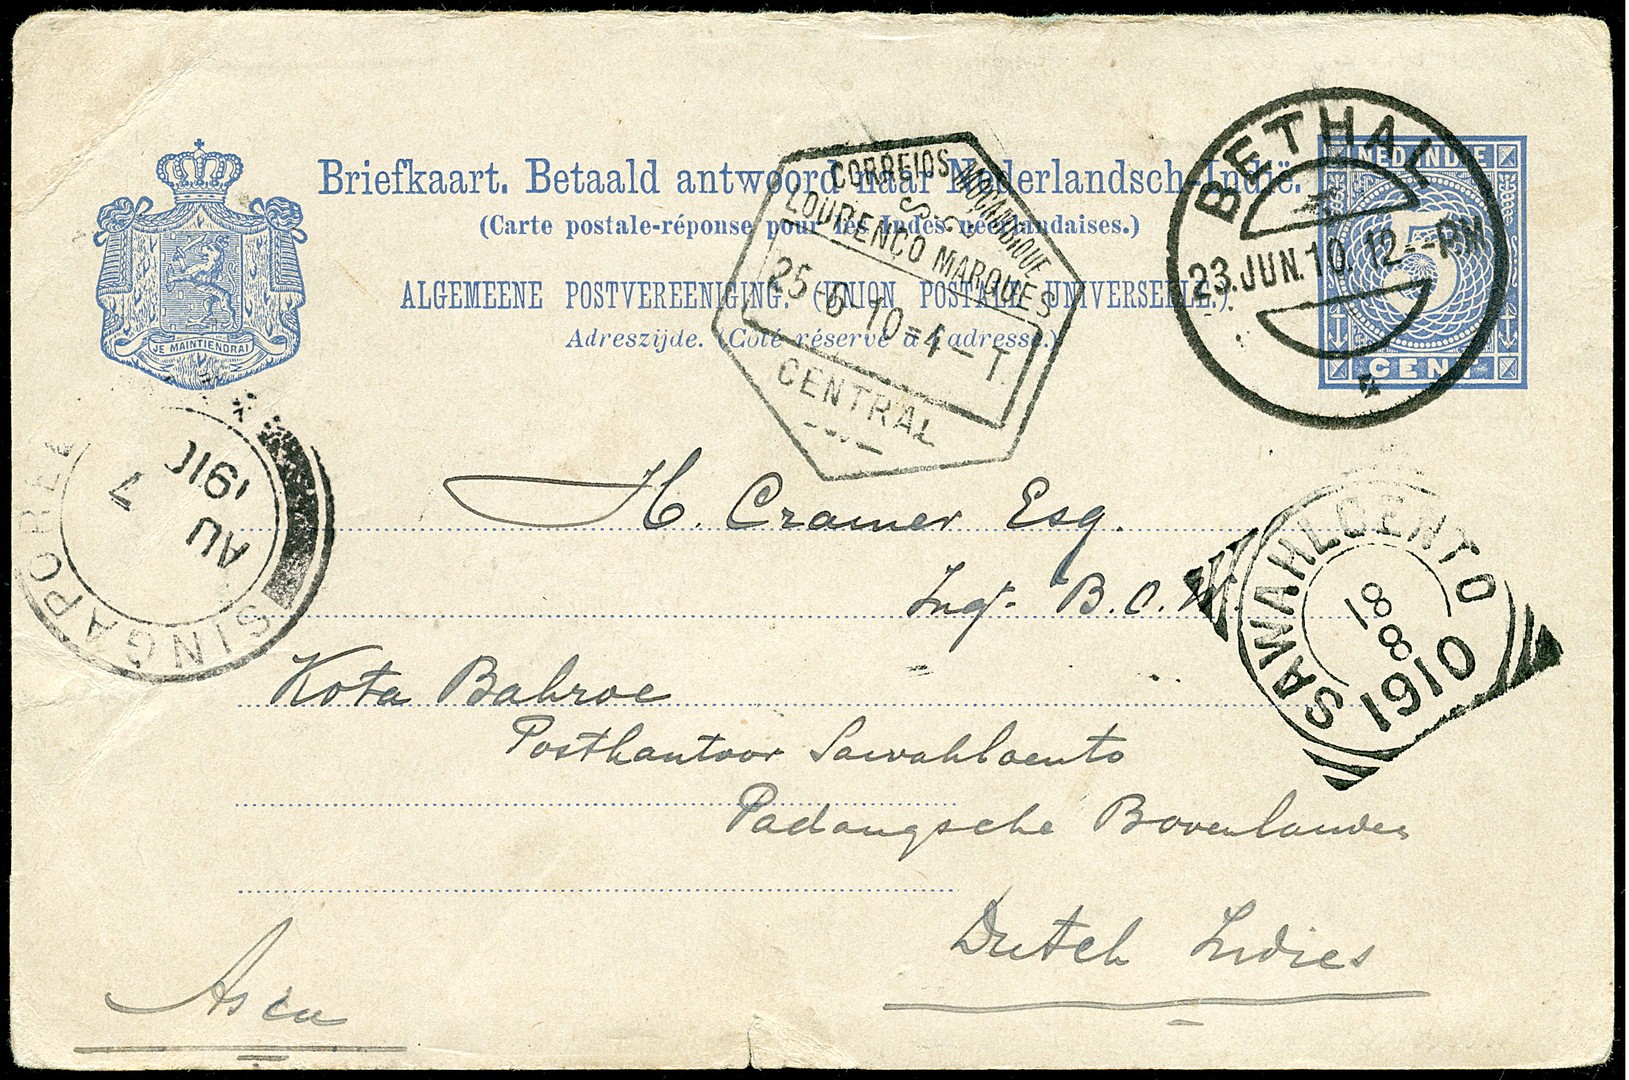 Briefkaart. Betaald antwoord naar Nederlandsch-Indië.
(Carte postale-réponse pour les Indes néerlandaises.)
ALGEMEENE POSTVEREENIGING. (UNION POSTALE UNIVERSELLE.)
Adreszijde. (Côté réservé à l'adresse.)
JE MAINTIENDRAI
NED-INDIE
5
CENT
BETHAL
23.JUN.10. 12--PM
CORREIOS MOÇAMBIQUE
LOURENCO MARQUES
25 6 10=4-T.
CENTRAL
SINGAPORE
AU
7
1910
SAWAHLOENTO
18
8
1910
H. Cramer Esq.
Ingr. B.O.W.
Kota Bahroe
Postkantoor Sawahloento
Padangsche Bovenlanden
Dutch Indies